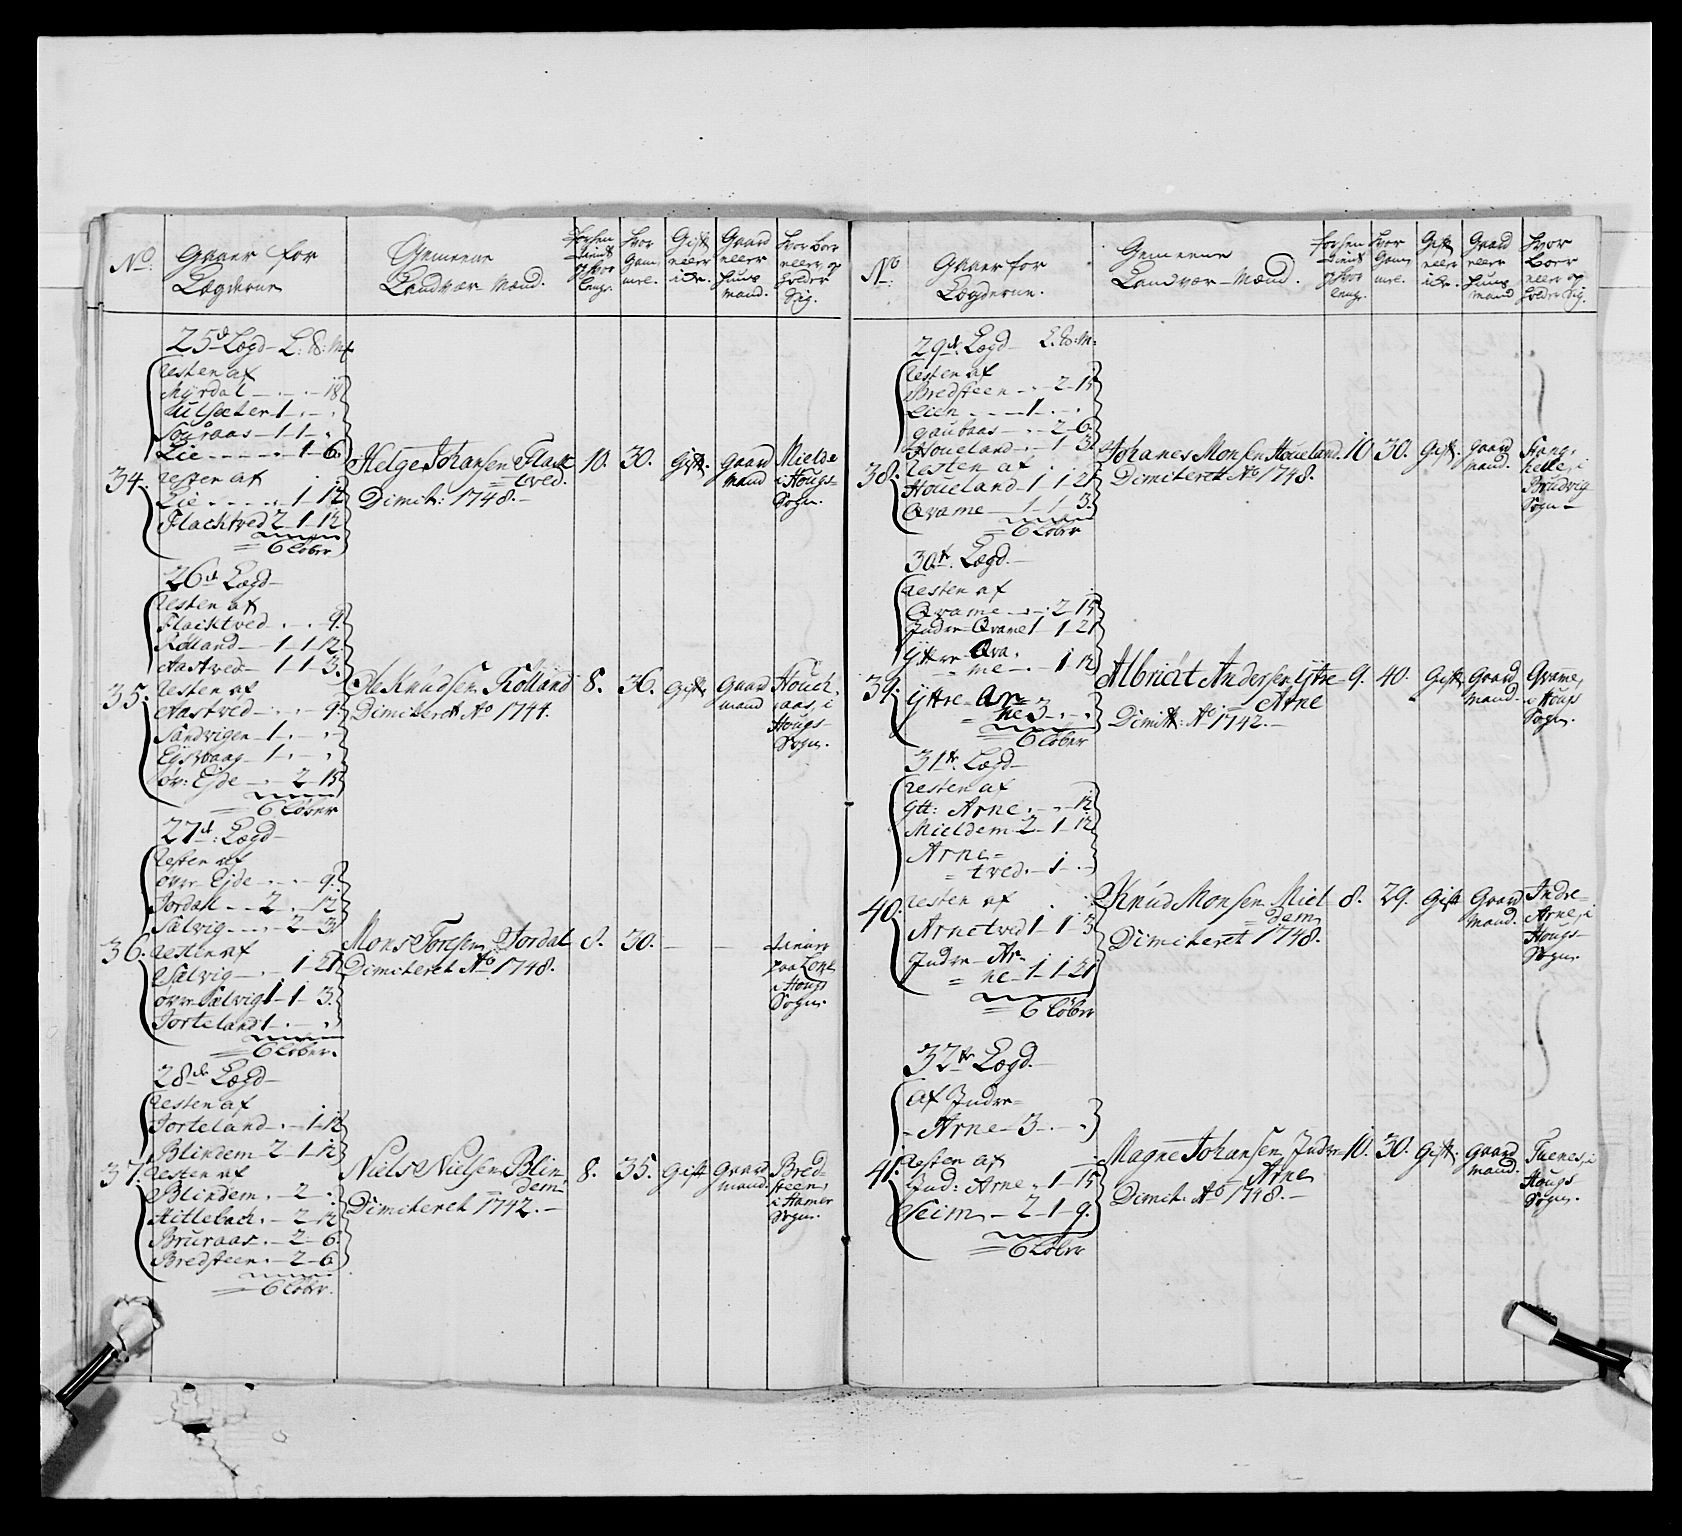 No:
Gaaer for
Lægderne
Gemeene
Landvær-Mænd.
Forhen
tient
og hvor
leng.
hvor
Gam-
mel.
Gift
eller
ickr.
Gaard
eller
Huus
mand.
hvor boer
eller op
holder
sig.
25de Lægd- L: B: Mf
resten af
Myrdal - . - . - 18
Kulseter 1 . - .
Souraas - 1 - 1 - .
Lie . . . . 1 - 6.
34.
resten af
Lie . . . . . 1 - 12
Flacktved 2 - 1 - 12
= 6 Løber
Helge Johansen Flack
= tved.
Dimit: 1748. -
10.
30.
Gift.
Gaard
mand
Mielde
i Hougs
Sogn.
26de Lægd-
resten af
Flacktved . - . 9.
Rølland - 1 - 1 - 12.
Aastved - 1 - 1 - 3.
35.
resten af
Aastved - . - . 9.
Sandvigen - 1 . - .
Eijsvaag - 1 . - .
øv: Ejde - . - 2 - 15
= 6 Løber
Ole Knudsen Rølland
Dimiteret Ao 1744.
8.
36.
Gift.
Gaard
mand
Houck-
aas, i
Hougs-
Sogn.
27de: Lægd-
resten af
øvr Ejde - . - . 9.
Jordall - - 2 . - 12
Salvig - . - . 2 - 3
36.
resten af
Salvig - . - 1 - 21
øvr Salvig 1 - 1 - 3.
Torteland 1 - . - .
= 6 Løber.
Mons Toresen Jordal
Dimiteret Ao 1748.
8.
30.
-
-
tiener
paa Lone
i Hougs
Sogn.
28de Lægd-
resten af
Torteland - . - 1 - 12
Blindem 2 - 1 - 12
37.
resten af
Blindem . - 2 - .
Hitlebach . - 2 - 12
Bruraas . - 2 - 6.
Bredsteen . - 2 - 6
= 6 Løber.
Niels Nielsen Blin-
= dem
Dimiteret 1742. -
8.
35.
Gift
Gaard
mand.
Bred-
steen,
i Hamer
Sogn.
No
Gaaer for
Lægderne.
Gemeene
Landvær-Mænd.
Forhen
tient
og hvor
leng.
hvor
Gam-
mel.
Gift
eller
ickr.
Gaard
eller
Huus
mand
hvor
boer
eller op
holder sig.
29de: Lægd L: B: M:
resten af
Bredsteen - . - 2 - 15
Lien - - - 1 . - .
Gaubaas - . - 2 - 6.
Houeland . - 1 - 3.
38.
resten af
Houeland - 1 - 1 - 21
Qvame - 1 - 1 - 3.
= 6 Løber
Johanes Monsen Houeland
Dimiteret Ao 1748.
10
30.
Gift.
Gaard
mand.
Hang-
helle, i
Brudvig
Sogn -
30te. Lægd.-
resten af
Qvame - . - 2 - 15
Indre Qvame 1 - 1 - 21
Yttre Qva-
= me - . 1 - 12
39.
Yttre Ar-
= ne 3 - . - .
= 6 Løber
Albriðt Andersen Ytre
= Arne
Dimitt: Ao 1742. -
9.
40.
Gift.
Gaard
mand.
Qvame,
i Hougs
Sogn.
31te. Lægd-
resten af
Ytt: Arne . - . - 12
Mieldem 2 - 1 - 12
Arne-
= tved. - 1 - . -
40.
resten af
Arnetved 1 - 1 - 3
Indre Ar-
= ne - 1 - 1 - 21
= 6 Løber
Knud Monsen Miel-
= dem
Dimiteret 1748.
8.
29.
Gift
Gaard
mand.
Indre-
Arne, i
Hougs-
Sogn.
32te Lægd.-
af Indre-
- Arne - 3 - . - .
41.
resten af
Ind: Arne . - 1 - 15
Seim - 2 - 1 - 9.
= 6 Løber
Magne Johansen Indre
= Arne
Dimit: Ao 1748. -
10.
30.
Gift.
Gaard
mand.
Tuenes, i
Hougs
Sogn.